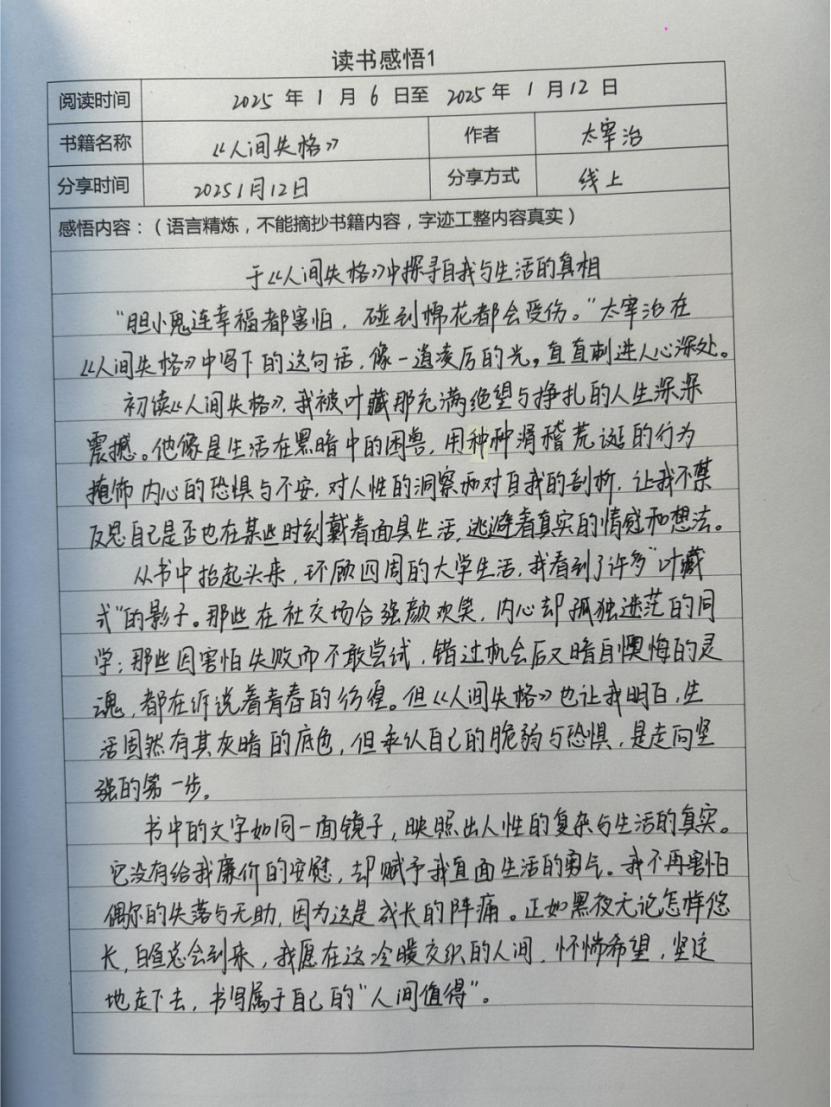 读书感悟1
阅读时间 2025 年 1 月 6 日至 2025 年 1 月 12 日
书籍名称 《人间失格》 作者 太宰治
分享时间 2025 1月12日 分享方式 线上
感悟内容：（语言精炼，不能摘抄书籍内容，字迹工整内容真实）
于《人间失格》中探寻自我与生活的真相
“胆小鬼连幸福都害怕，碰到棉花都会受伤。”太宰治在
《人间失格》中写下的这句话，像一道凌厉的光，直直刺进人心深处。
初读《人间失格》，我被叶藏那充满绝望与挣扎的人生深深
震撼。他像是生活在黑暗中的困兽，用种种滑稽荒诞的行为
掩饰内心的恐惧与不安，对人性的洞察和对自我的剖析，让我不禁
反思自己是否也在某些时刻戴着面具生活，逃避着真实的情感和想法。
从书中抬起头来，环顾四周的大学生活，我看到了许多“叶藏
式”的影子。那些在社交场合强颜欢笑，内心却孤独迷茫的同
学；那些因害怕失败而不敢尝试，错过机会后又暗自懊悔的灵
魂，都在诉说着青春的彷徨。但《人间失格》也让我明白，生
活固然有其灰暗的底色，但承认自己的脆弱与恐惧，是走向坚
强的第一步。
书中的文字如同一面镜子，映照出人性的复杂与生活的真实。
它没有给我廉价的安慰，却赋予我直面生活的勇气。我不再害怕
偶尔的失落与无助，因为这是成长的阵痛。正如黑夜无论怎样悠
长，白昼总会到来，我愿在这冷暖交织的人间，怀揣希望，坚定
地走下去，书写属于自己的“人间值得”。